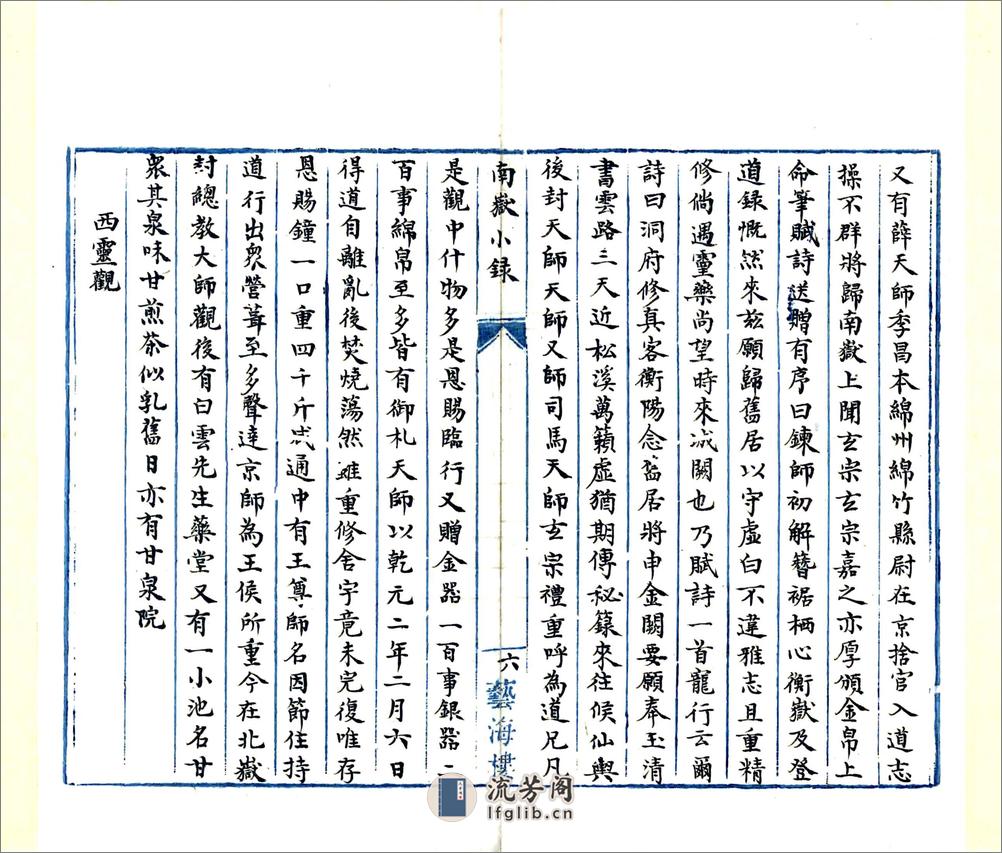 又有薛天師季昌本綿州綿竹縣尉在京捨官入道志
操不群將歸南嶽上聞玄宗玄宗嘉之亦厚頒金帛上
命筆賦詩送贈有序曰鍊師初解簪裾栖心衡嶽及登
道録慨然來玆願歸舊居以守虛白不違雅志且重精
修倘遇靈藥尚望時來城闕也乃賦詩一首寵行云爾
詩曰洞府修真客衡陽念舊居將申金闕要願奉玉清
書雲路三天近松溪萬籟虛猶期傳秘籙來往候仙輿
後封天師天師又師司馬天師玄宗禮重呼為道兄凡
南嶽小録
六
藝海樓
是觀中什物多是恩賜臨行又贈金器一百事銀器二
百事綿帛至多皆有御札天師以乾元二年二月六日
得道自離亂後焚燒蕩然雖重修舍宇竟未完復唯存
恩賜鐘一口重四千斤咸通中有王尊師名因節住持
道行出衆營葺至多聲達京師為王侯所重今在北嶽
封總教大師觀後有白雲先生藥堂又有一小池名甘
泉其泉味甘煎茶似乳舊日亦有甘泉院
西靈觀
流芳阁
lfglib.cn